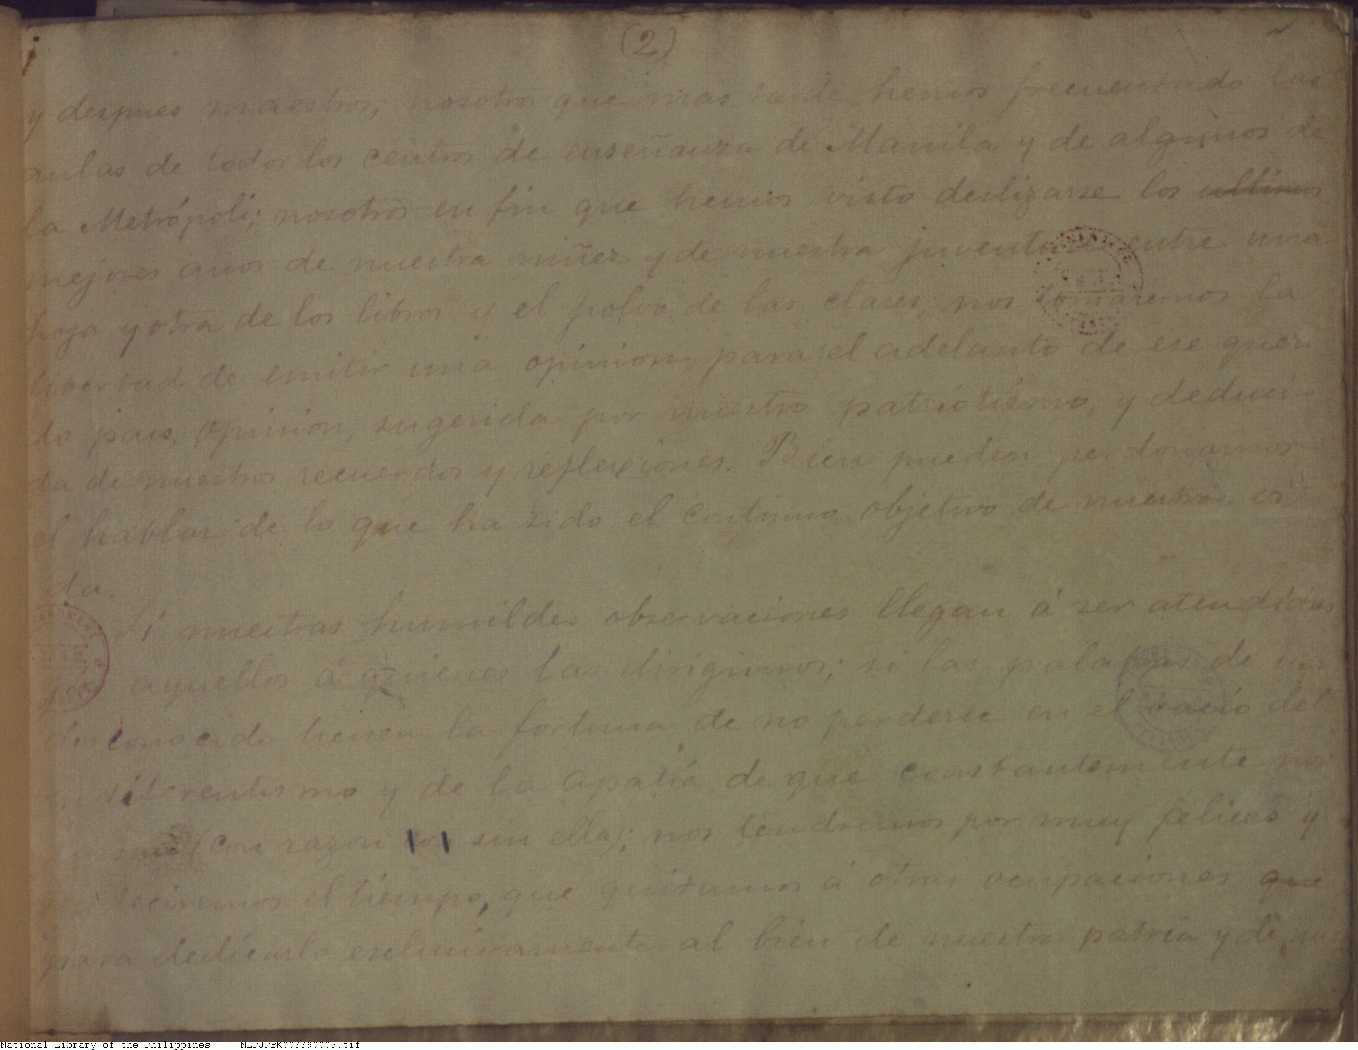 (2)
y despues maestros; nosotros que mas tarde hemos frecuentado las
aulas de todos los centros de enseñanza de Manila y de algunos de
la Metrópoli; nosotros en fin que hemos visto deslizarse los ultimos
mejores años de nuestra niñez y de nuestra juventud entre una
hoja y otra de los libros y el polvo de las clases, nos tomaremos la
libertad de emitir una opinion, para el adelanto de ese queri
do pais, opinion, sugerida por nuestro patriotismo, y deduci
da de nuestros recuerdos y reflexiones. Bien pueden perdonarnos
el hablar de lo que ha sido el continuo objetivo de nuestra vi
da.
Si nuestras humildes observaciones llegan á ser atendidas
por aquellos á quienes las dirigimos; si las palabras de un
desconocido tienen la fortuna de no perderse en el vacio del
indiferentismo y de la apatía de que constantemente nos
(con razon o sin ella); nos tendremos por muy felices y
bendeciremos el tiempo, que quitamos á otras ocupaciones que
para dedicarlo exclusivamente al bien de nuestra patria y de
National Library of the Philippines